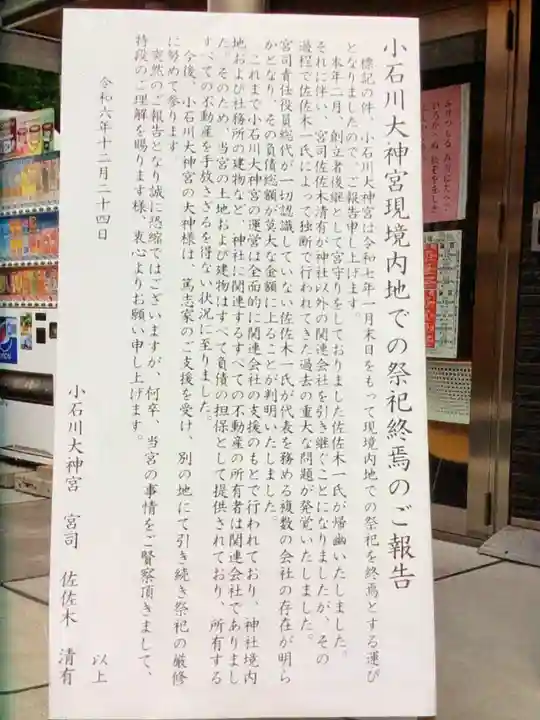 小石川大神宮現境内地での祭祀終焉のご報告
標記の件、小石川大神宮は令和七年一月末日をもって現境内地での祭祀を終焉とする運び
となりましたので、ご報告申し上げます。
本年二月、創立者後継として宮守りをしておりました佐佐木一氏が帰幽いたしました。
それに伴い、宮司佐佐木清有が神社以外の関連会社を引き継ぐことになりましたが、その
過程で佐佐木一氏によって独断で行われてきた過去の重大な問題が発覚いたしました。
宮司責任役員総代が一切認識していない佐佐木一氏が代表を務める複数の会社の存在が明ら
かとなり、その負債総額が莫大な金額に上ることが判明いたしました。
これまで小石川大神宮の運営は全面的に関連会社の支援のもとで行われており、神社境内
地および社務所の建物など、神社に関連するすべての不動産の所有者は関連会社でありまし
た。そのため、当宮の土地および建物はすべて負債の担保として提供されており、所有する
すべての不動産を手放さざるを得ない状況に至りました。
今後、小石川大神宮の大神様は、篤志家のご支援を受け、別の地にて引き続き祭祀の厳修
に努めて参ります
突然のご報告となり誠に恐縮ではございますが、何卒、当宮の事情をご賢察頂きまして、
特段のご理解を賜ります様、衷心よりお願い申し上げます。
以上
令和六年十二月二十四日
小石川大神宮 宮司 佐佐木 清有